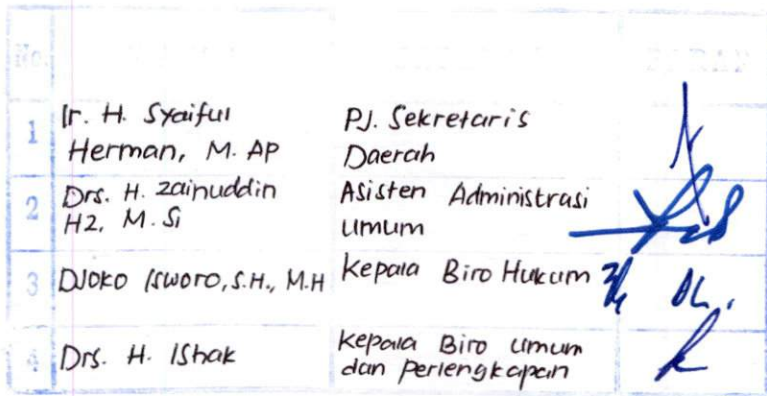 No.
PARAF
1 Ir. H. Syaiful Herman, M. AP PJ. Sekretaris Daerah
2 Drs. H. Zainuddin HZ, M. Si Asisten Administrasi Umum
3 DJOKO ISWORO, S.H., M.H Kepala Biro Hukum
4 Drs. H. Ishak Kepala Biro Umum dan perlengkapan